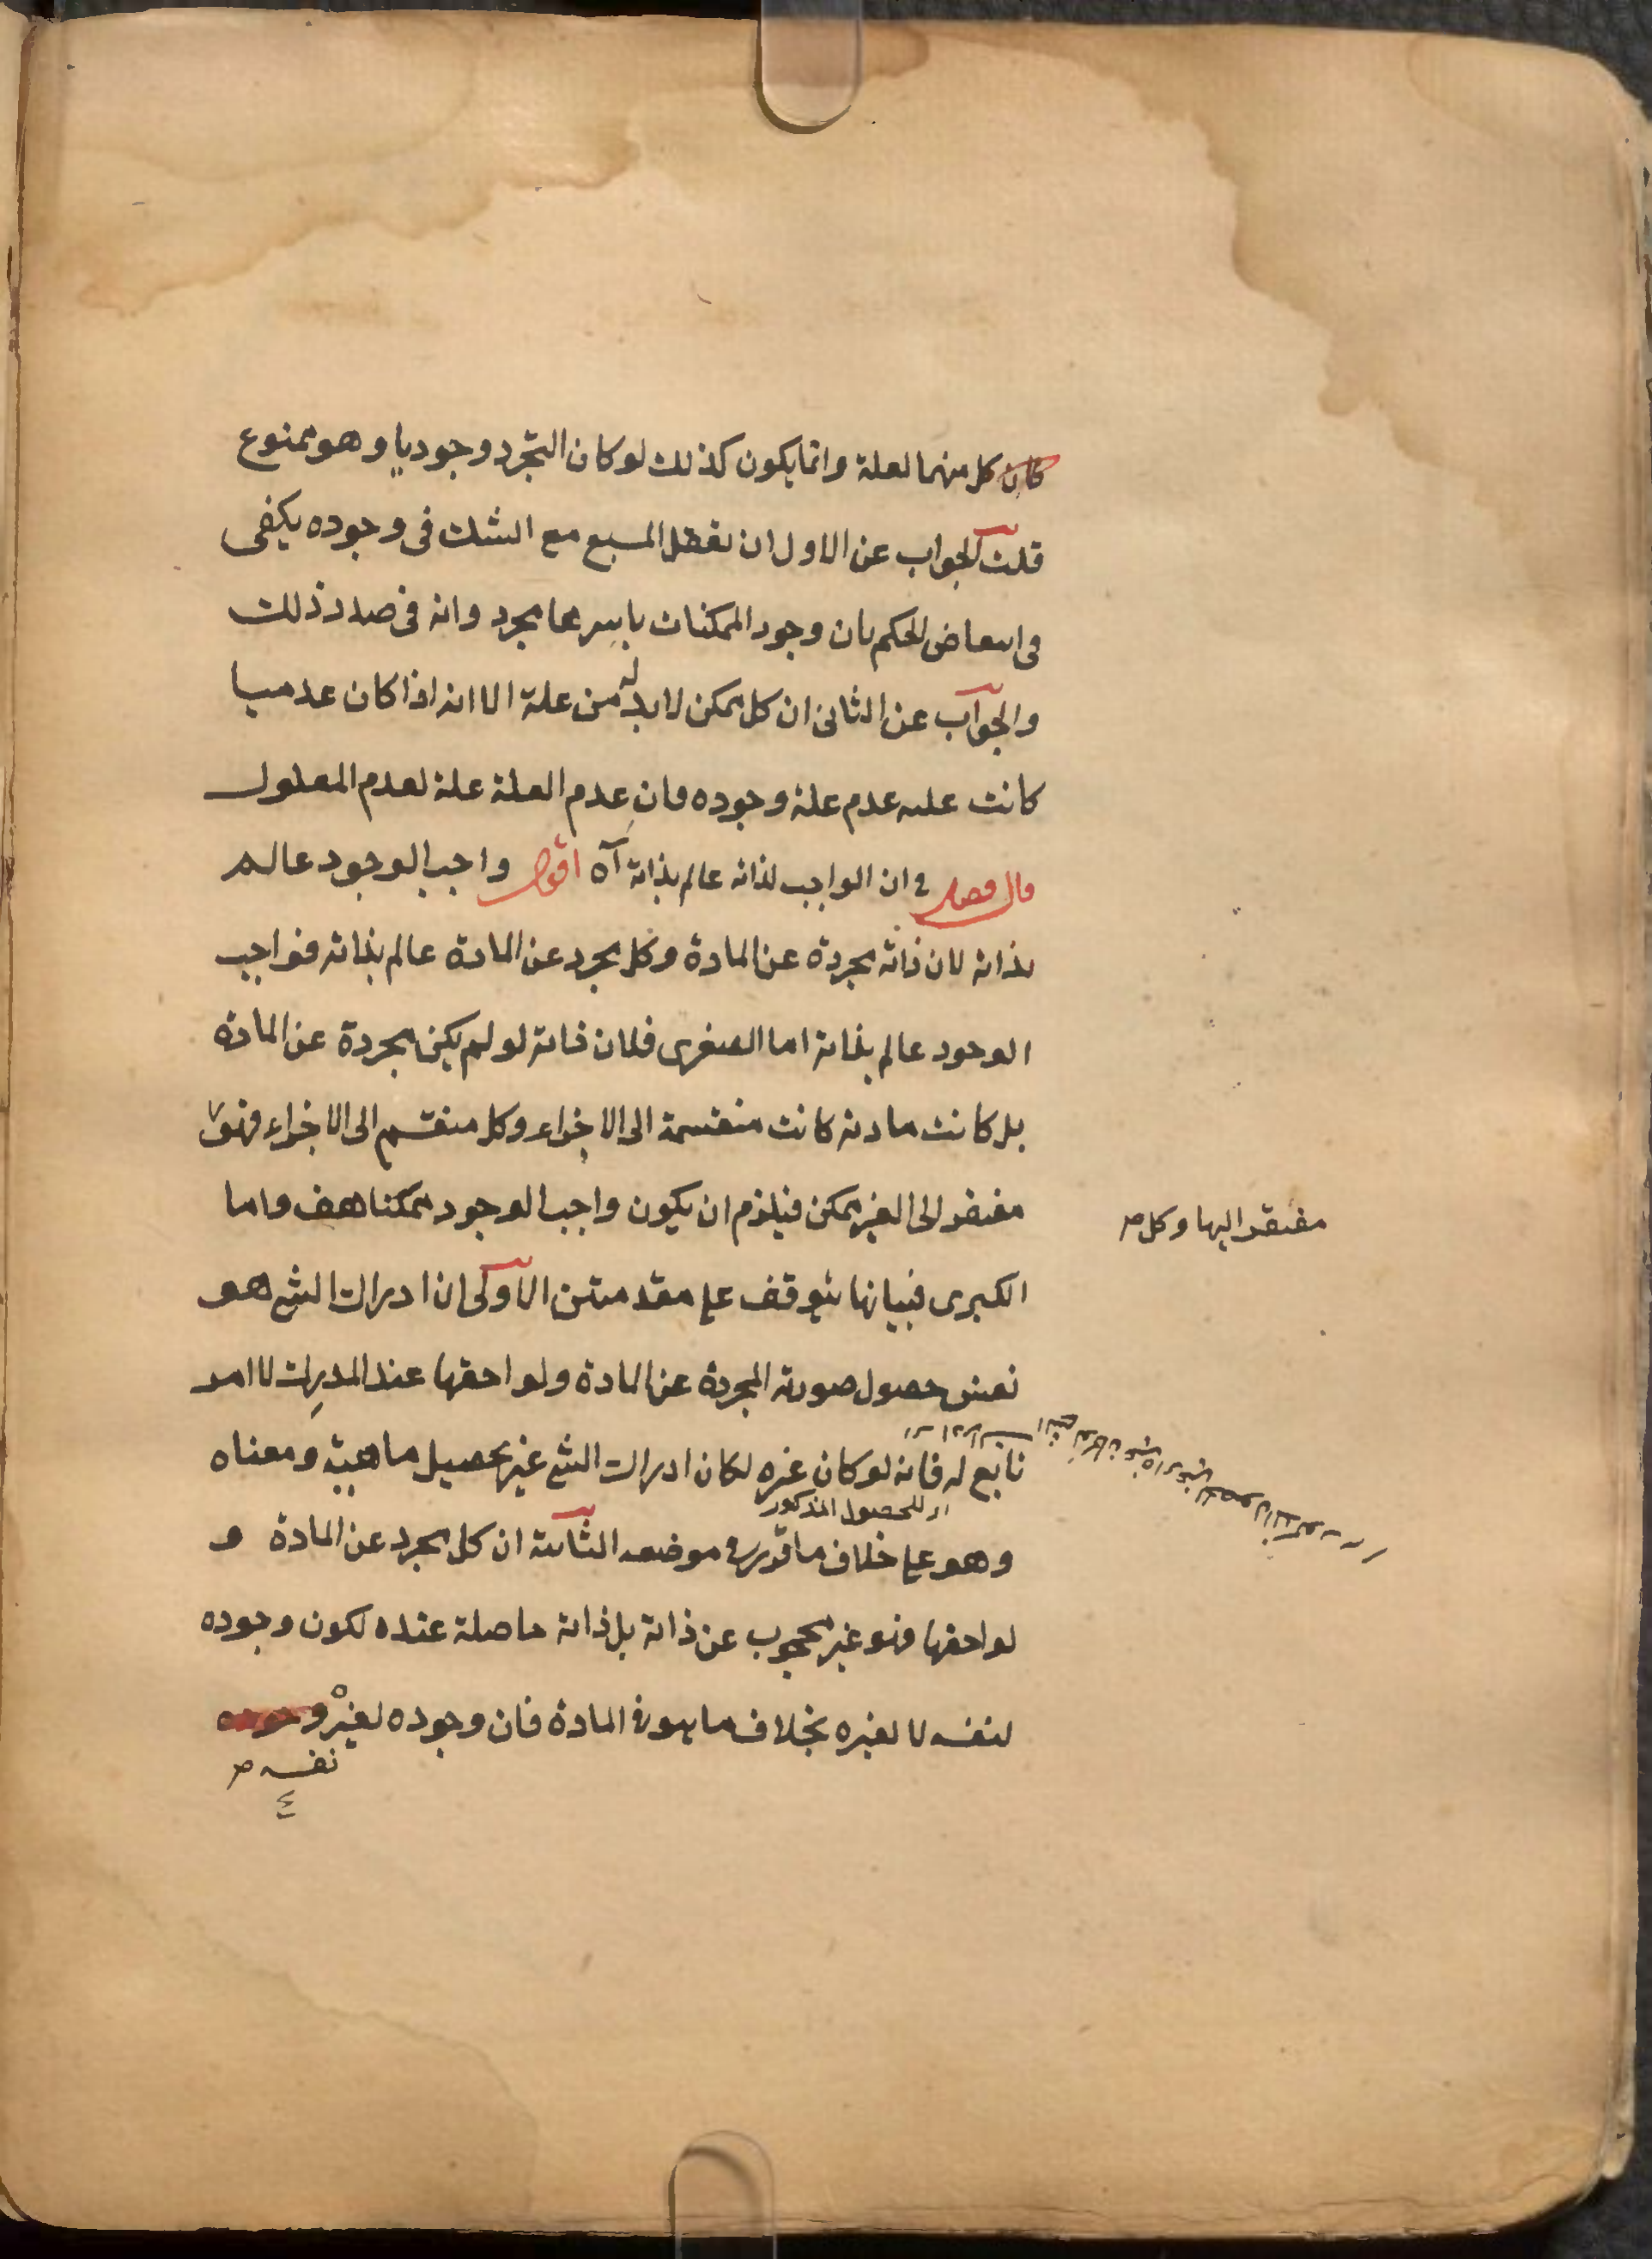 كان كل منهما لعلة وانما يكون كذلك لو كان التجرد وجوديا وهو ممنوع
قلت الجواب عن الاول ان تعقل المسبع مع الشك فى وجوده يكفى
فى انتقاض الحكم بان وجود الممكنات باسرها مجرد وانه فى صدد ذلك
والجواب عن الثانى ان كل ممكن لا بد له من علة الا انه اذا كان عدميا
كانت علته عدم علة وجوده فان عدم العلة علة لعدم المعلول
قال فصل فى ان الواجب لذاته عالم بذاته آه اقول واجب الوجود عالم
بذاته لان ذاته مجردة عن المادة وكل مجرد عن المادة عالم بذاته فواجب
الوجود عالم بذاته اما الصغرى فلان ذاته لو لم يكن مجردة عن المادة
بل كانت مادية كانت منقسمة الى الاجزاء وكل منقسم الى الاجزاء فهو
مفتقر اليها وكل صح
مفتقر الى الغير ممكن فيلزم ان يكون واجب الوجود ممكنا هف واما
الكبرى فبيانها يتوقف على مقدمتين الاولى ان ادراك الشئ هو
نفس حصول صورته المجردة عن المادة ولواحقها عند المدرك لا امر
تابع له فانه لو كان غيره لكان ادراك الشئ غير تحصيل ماهيته ومعناه
اى للحصول المذكور
وهو على خلاف ما قرر فى موضعه الثانية ان كل مجرد عن المادة و
لواحقها فهو غير محجوب عن ذاته بل ذاته حاصلة عنده لكون وجوده
لنفسه لا لغيره بخلاف ما هو فى المادة فان وجوده لغيره وجوده
نفسه صح
٤